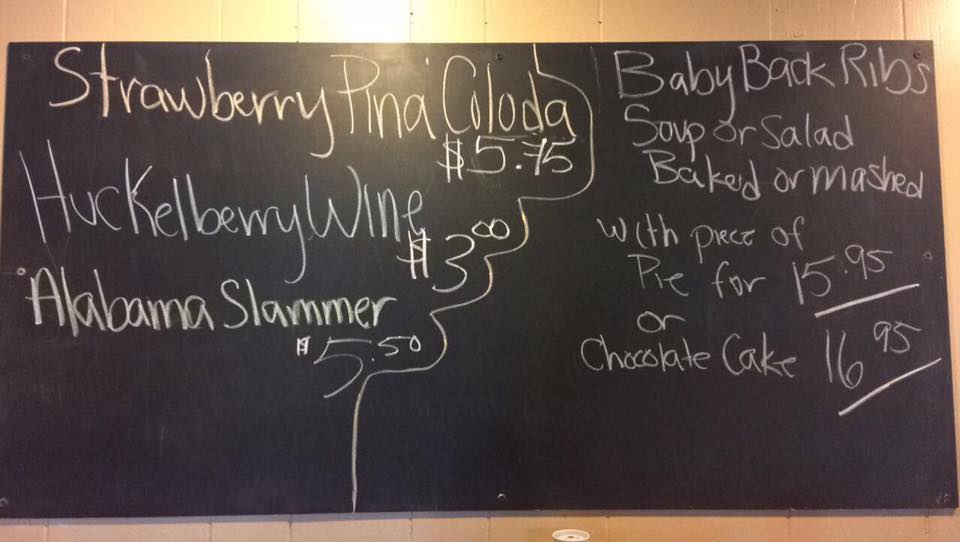 Strawberry Pina Coloda
$5.75
Huckelberry Wine
$3.00
Alabama Slammer
$5.50
Baby Back Ribs
Soup or Salad
Baked or mashed
with piece of
Pie for 15.95
or
Chocolate Cake 16 95